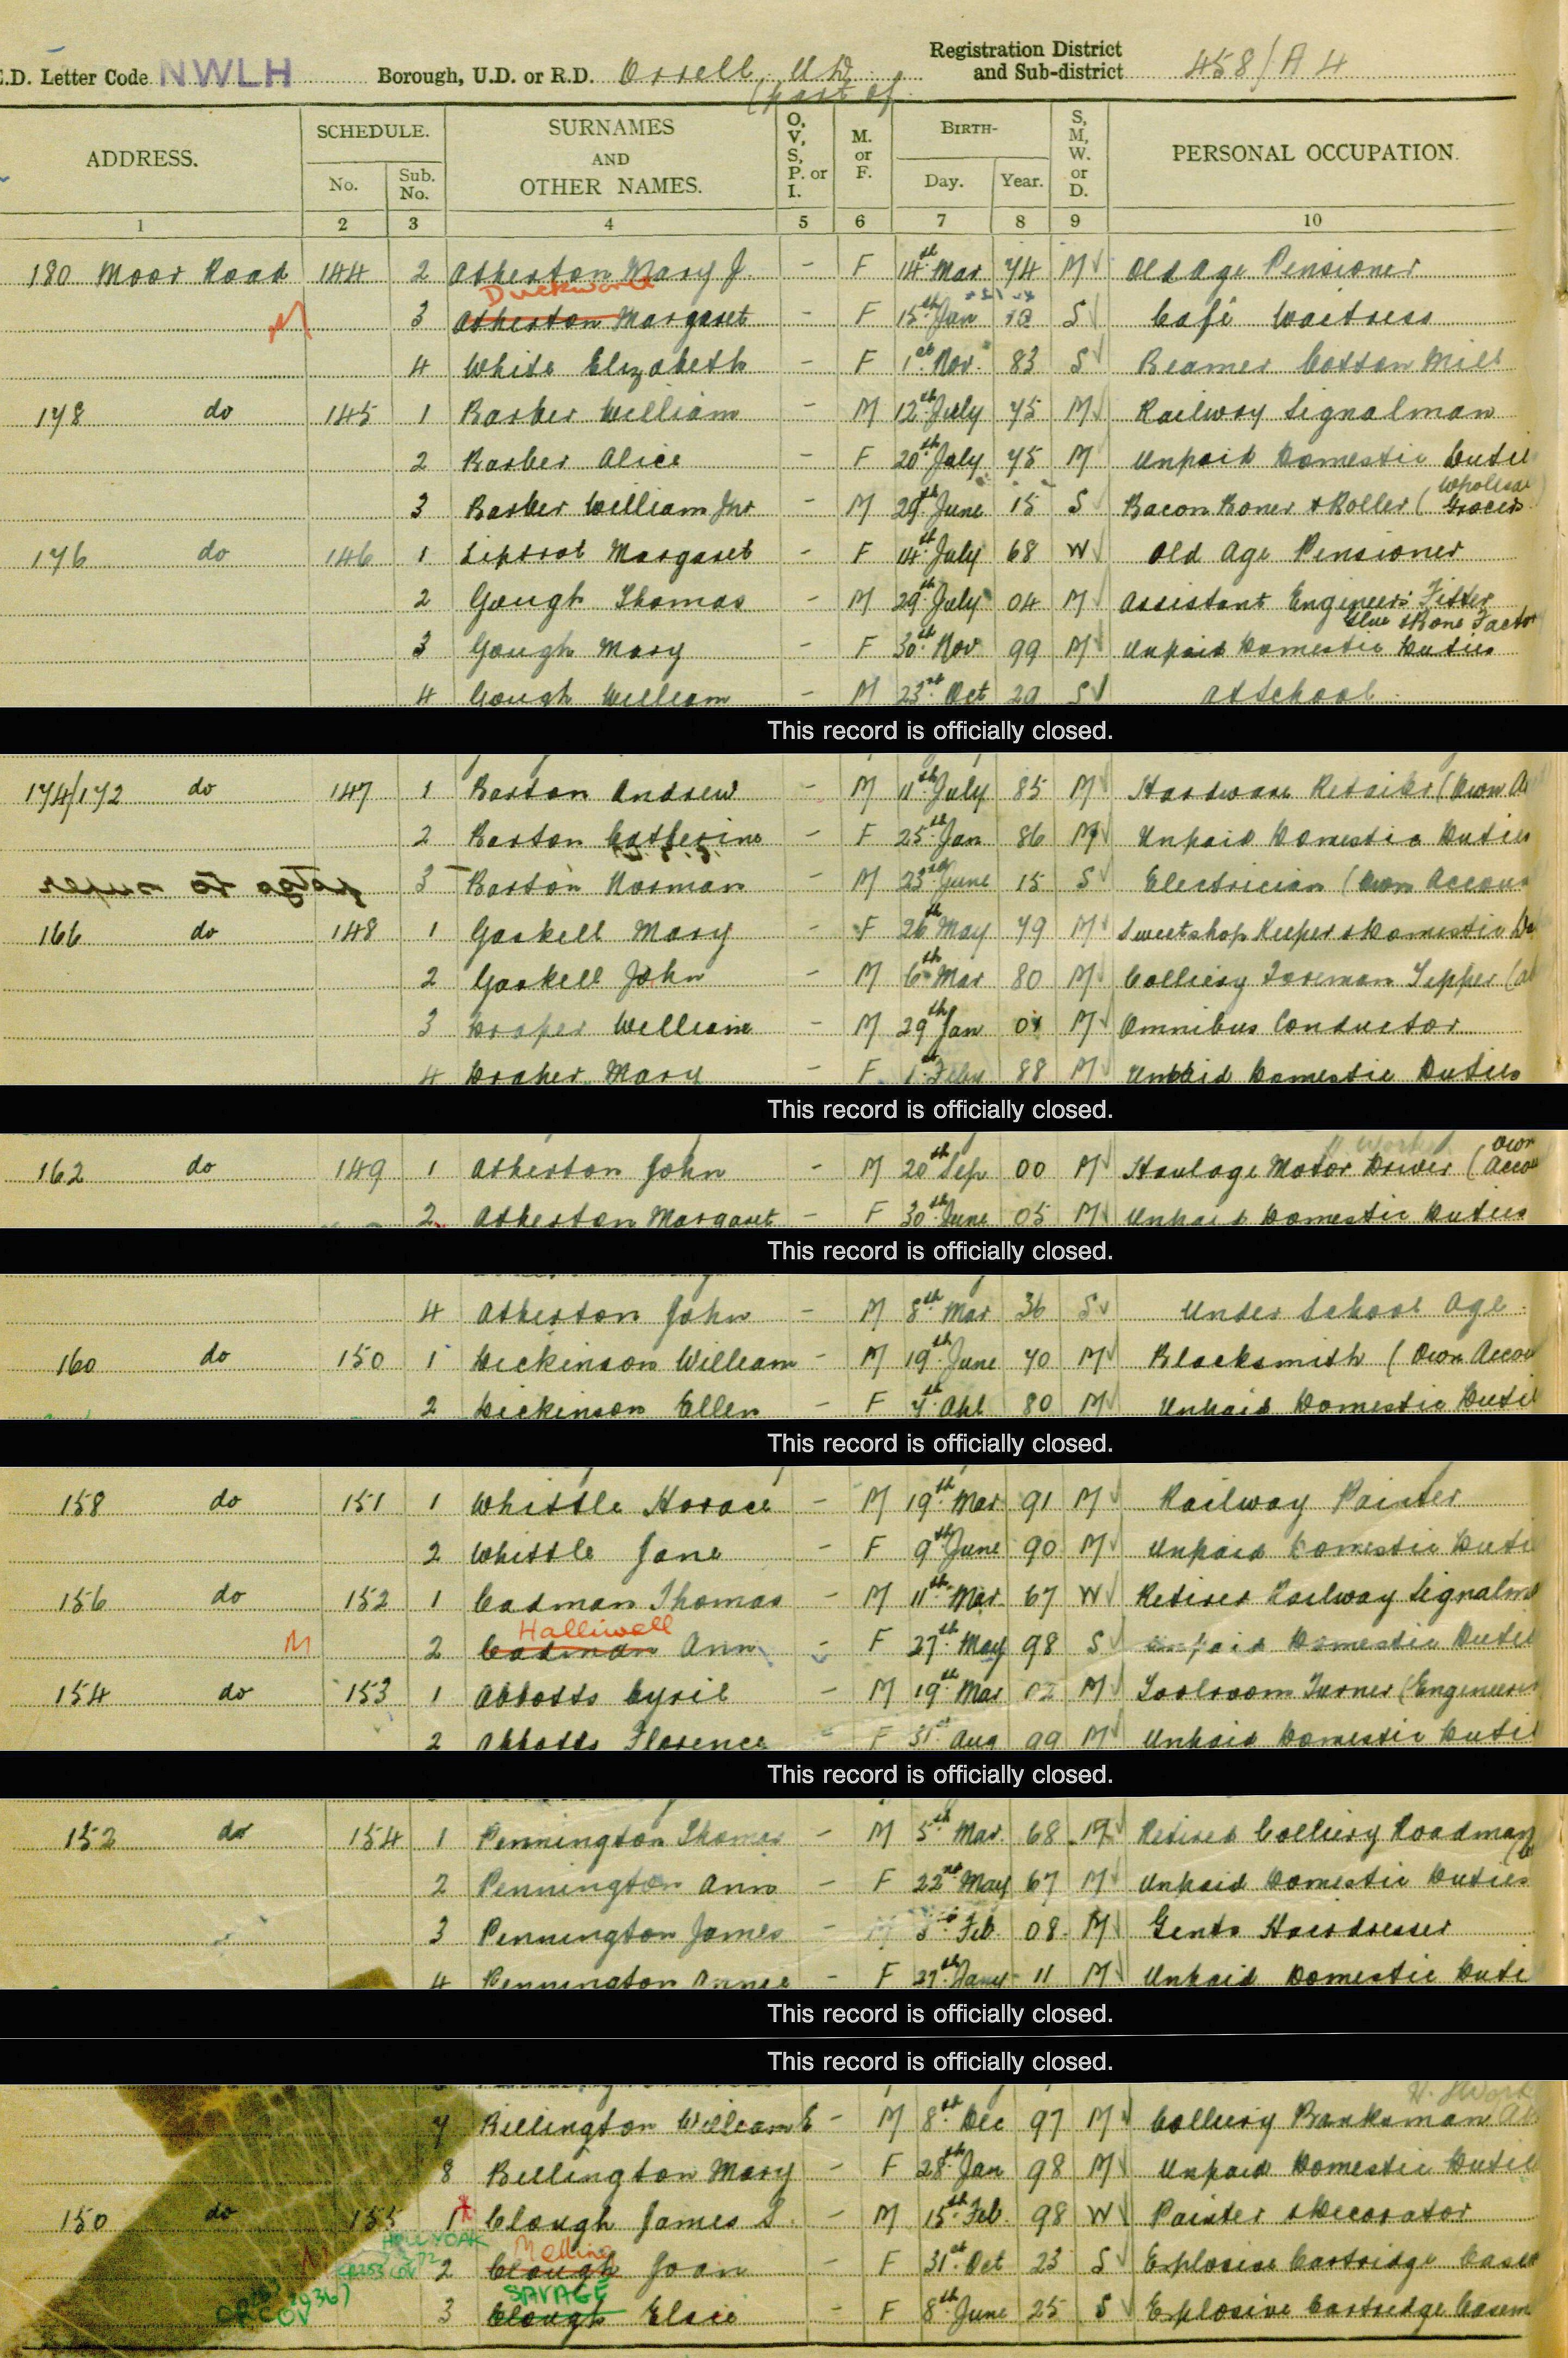 E.D. Letter Code NWLH Borough, U.D. or R.D. Orrell U D (part of Registration District and Sub-district 458/A 4
ADDRESS. SCHEDULE. No. Sub. No. SURNAMES AND OTHER NAMES. O, V, S, P. or I. M. or F. BIRTH- Day. Year. S, M, W. or D. PERSONAL OCCUPATION.
1 2 3 4 5 6 7 8 9 10
180 Moor Road 144 2 Atherton Mary J. - F 14th Mar 74 M Old Age Pensioner
Duckworth
M 3 Atherton Margaret - F 15th Jan S Café Waitress
4 White Elizabeth - F 1st Nov. 83 S Beamer Cotton Mill
178 do 145 1 Barber William - M 12th July 75 M Railway Signalman
2 Barber Alice - F 20th July 75 M Unpaid Domestic Duties
3 Barber William Jnr - M 29th June 15 S Bacon Boner & Roller (Wholesale Grocers)
176 do 146 1 Liptrot Margaret - F 14th July 68 W Old Age Pensioner
2 Gough Thomas - M 29th July 04 M Assistant Engineers Fitter
Glue & Bone Factor
3 Gough Mary - F 30th Nov 99 M Unpaid Domestic Duties
4 Gough William - M 23rd Oct 29 S At School
This record is officially closed.
174/172 do 147 1 Barton Andrew - M 11th July 85 M Hardware Retailer (Own A
2 Barton Catherine - F 25th Jan 86 M Unpaid Domestic Duties
3 Barton Norman - M 23rd June 15 S Electrician (Own Accoun
166 do 148 1 Gaskell Mary - F 26th May 79 M Sweetshop Keeper & Domestic Du
2 Gaskell John - M 6th Mar 80 M Colliery Foreman Tipper (a
3 Draper William - M 29th Jan 01 M Omnibus Conductor
4 Draper Mary - F 1st Feby 88 M Unpaid Domestic Duties
This record is officially closed.
162 do 149 1 Atherton John - M 20th Sep 00 M Haulage Motor Driver (Own Accou
2 Atherton Margaret - F 30th June 05 M Unpaid Domestic Duties
This record is officially closed.
4 Atherton John - M 8th Mar 36 S Under School Age
160 do 150 1 Dickinson William - M 19th June 70 M Blacksmith (Own Accou
2 Dickinson Ellen - F 4th Apl 80 M Unpaid Domestic Duti
This record is officially closed.
158 do 151 1 Whittle Horace - M 19th Mar 91 M Railway Painter
2 Whittle Jane - F 9th June 90 M Unpaid Domestic Duti
156 do 152 1 Cadman Thomas - M 11th Mar 67 W Retired Railway Signalm
Halliwell
M 2 Cadman Ann - F 27th May 98 S Unpaid Domestic Duti
154 do 153 1 Abbotts Cyril - M 19th Mar 02 M Toolroom Turner (Engineers
2 Abbotts Florence - F 31st Aug 99 M Unpaid Domestic Duti
This record is officially closed.
152 do 154 1 Pennington Thomas - M 5th Mar. 68 M Retired Colliery Roadman
2 Pennington Ann - F 22nd May 67 M Unpaid Domestic Duties
3 Pennington James - M Feb. 08 M Gents Hairdresser
4 Pennington Annie - F 27th Jany 11 M Unpaid Domestic Duti
This record is officially closed.
This record is officially closed.
7 Billington William E - M 8th Dec 97 M Colliery Banksman
8 Billington Mary - F 28th Jan 98 M Unpaid Domestic Duti
150 do 155 1 Clough James S. - M 15th Feb. 98 W Painter & Decorator
Melling
2 Clough Joan - F 31st Oct 23 S Explosive Cartridge Case
SAVAGE
3 Clough Elsie - F 8th June 25 S Explosive Cartridge Casem